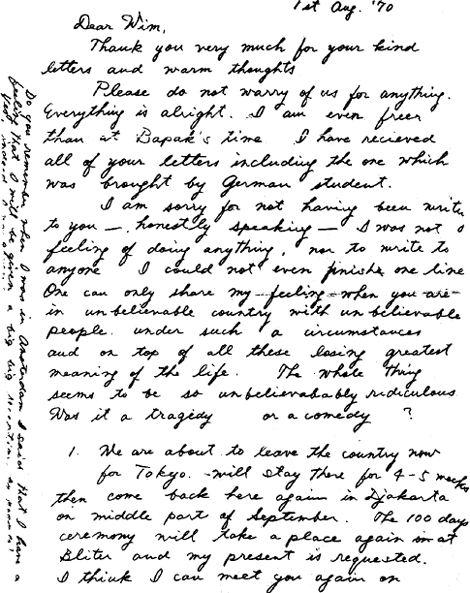 1st Aug. '70
Dear Wim,
Thank you very much for your kind
letters and warm thoughts
Please do not warry of us for anything.
Everything is alright. I am even freer
than at Bapak's time I have recieved
all of your letters including the one which
was brought by German student.
I am sorry for not having been write
to you — honestly speaking — I was not
feeling of doing anything, nor to write to
anyone I could not even finish one line
One can only share my feeling when you are
in unbelievable country with unbelievable
people. under such a circumstances
and on top of all these losing greatest
meaning of the life. The whole thing
seems to be so unbelievabably ridiculous
Was it a tragedy or a comedy ?
1. We are about to leave the country now
for Tokyo. will stay there for 4-5 weeks
then come back here again in Djakarta
on middle part of September. The 100 days
ceremony will take a place again at
Bliter and my present is requested.
I think I can meet you again on
Do you remember when I was in Amsterdam I said that I have a
feeling that I will be given a big big
indeed